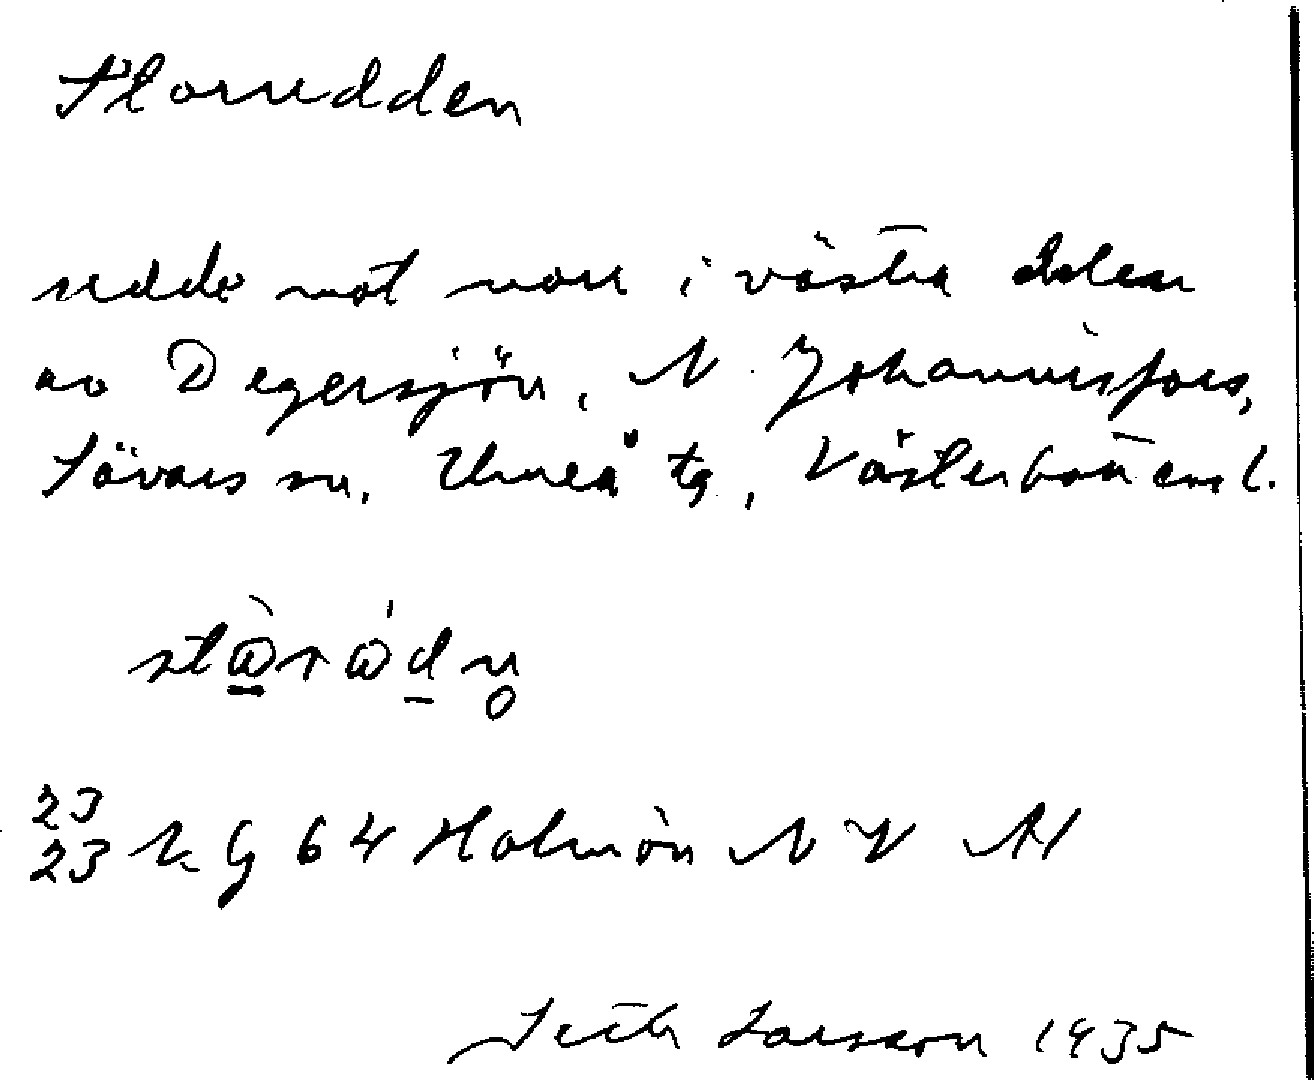 Storudden
udde mot norr i västra delen
av Degersjön, N. Johannisfors,
Sävars sn, Umeå tg, Västerbottens l.
23
23 k G 64 Holmön NV
Seth Larsson 1935